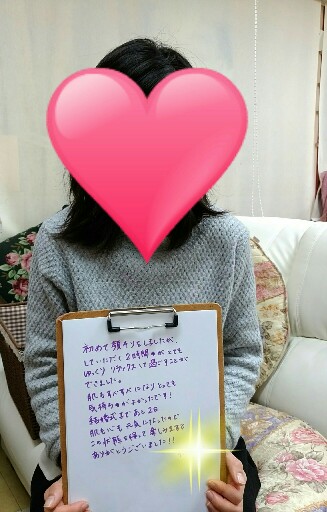 初めて顔そりをしましたが、
していただく2時間の間がとても
ゆっくりリラックスして過ごすことが
できました。
肌もすべすべになりとっても
気持ちがよかったです!
結婚式まであと2日
肌も心も元気になったので
この状態を保って楽しみます
ありがとうございました!!